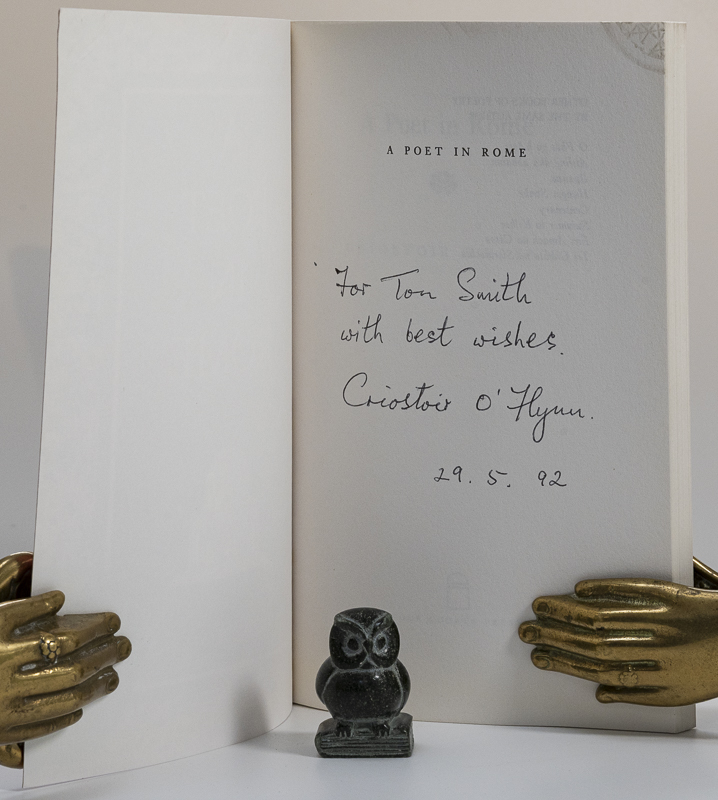 A POET IN ROME
For Tom Smith
with best wishes.
Criostoir O'Flynn.
29. 5. 92